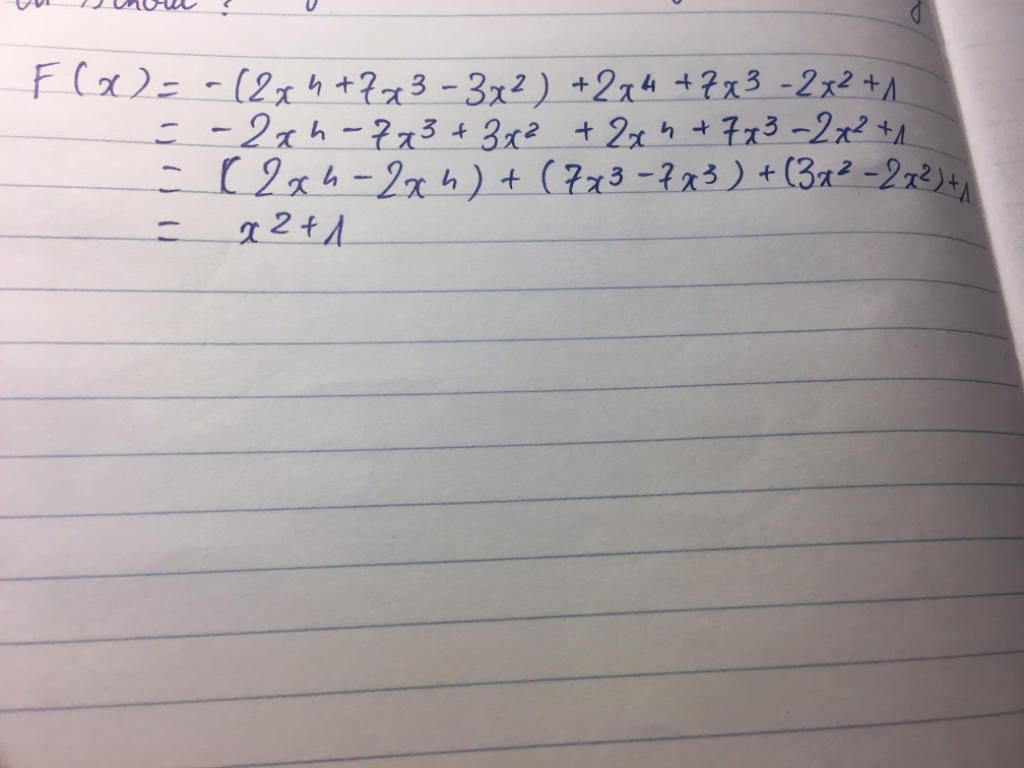 F(x) = -(2x⁴ + 7x³ - 3x²) + 2x⁴ + 7x³ - 2x² + 1
= - 2x⁴ - 7x³ + 3x² + 2x⁴ + 7x³ - 2x² + 1
= (2x⁴ - 2x⁴) + (7x³ - 7x³) + (3x² - 2x²) + 1
= x² + 1